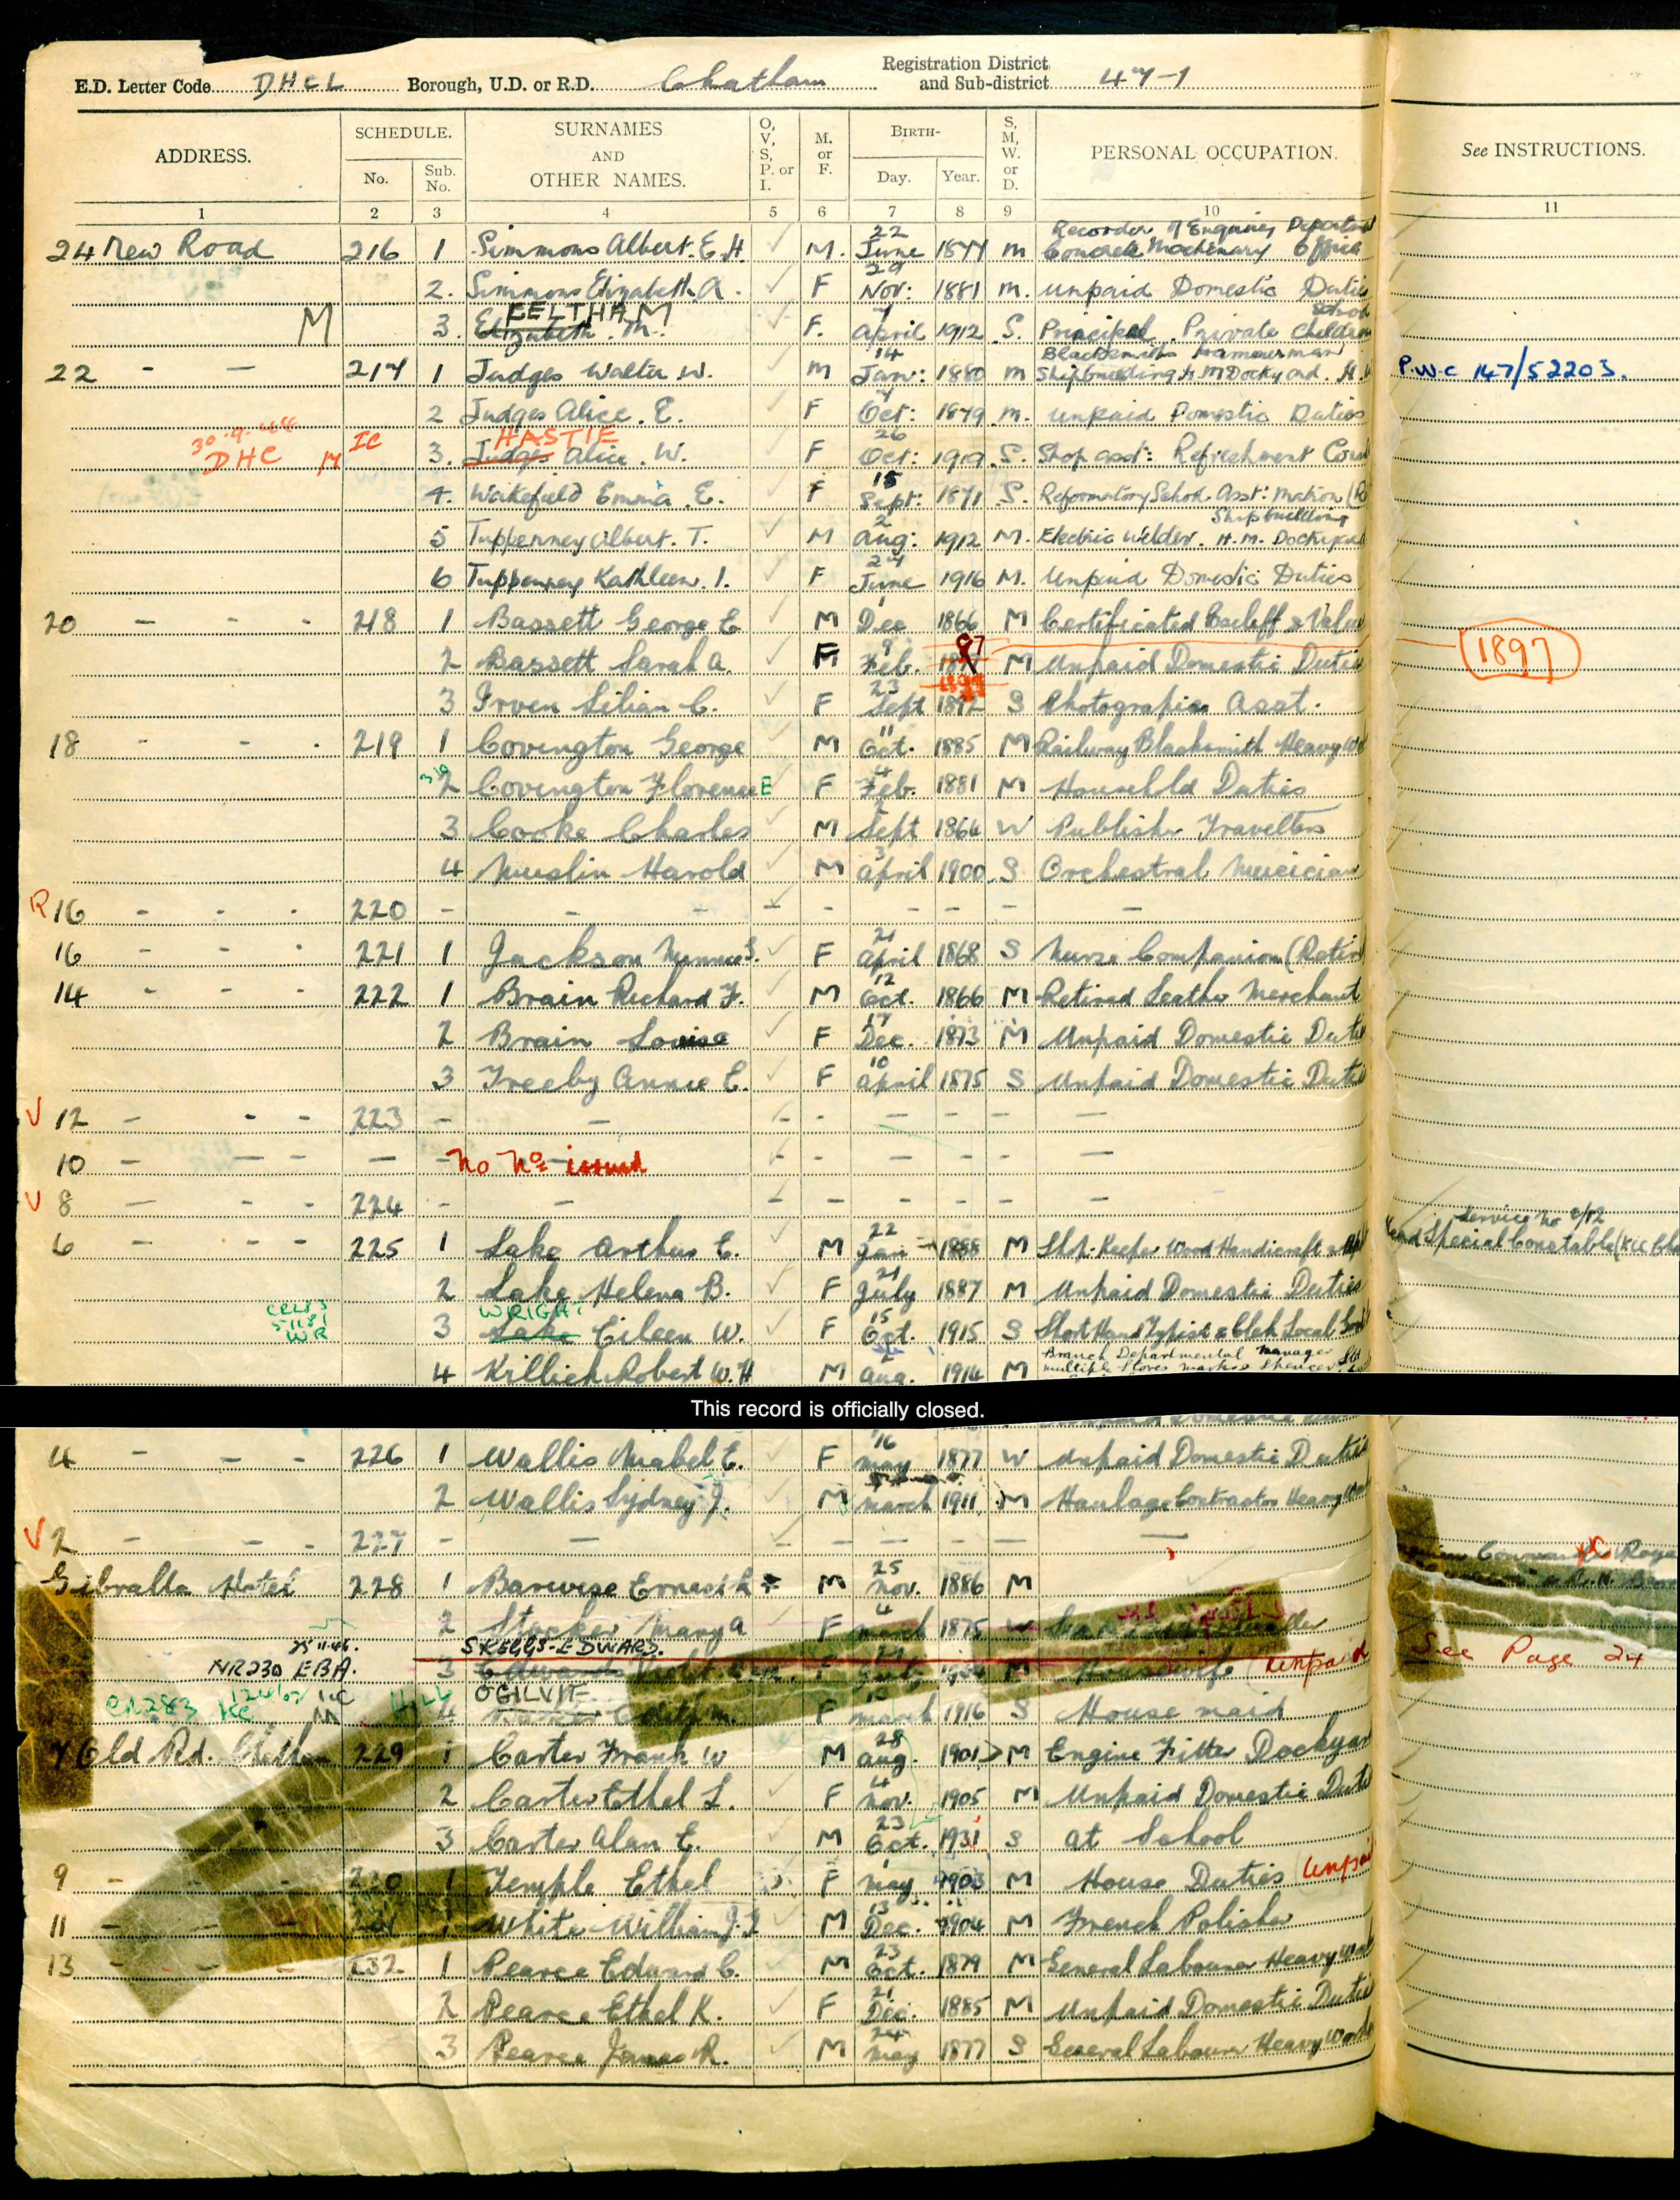 E.D. Letter Code DHCL Borough, U.D. or R.D. Chatham Registration District and Sub-district 47-1
ADDRESS. SCHEDULE. No. Sub. No. SURNAMES AND OTHER NAMES. O, V, S, P. or I. M. or F. BIRTH- Day. Year. S, M, W. or D. PERSONAL OCCUPATION. See INSTRUCTIONS.
1 2 3 4 5 6 7 8 9 10 11
24 New Road 216 1 Simmons Albert. E. H M. 22 June 1877 m Recorder of Enquiries Department Concrete Machinery Office
2. Simmons Elizabeth A. F 29 Nov: 1881 m. Unpaid Domestic Duties
M 3. FELTHAM Elizabeth. M. F. April 1912 S. Principal. Private Children School
22 - - 217 1 Judges Walter W. m 14 Jan: 1880 m Blacksmiths Hammerman Shipbuilding H M Dockyard. P.W.C 147/52203.
2 Judges Alice. E. F Oct: 1879 m. Unpaid Domestic Duties
30.9. DHC M IC 3. HASTIE Judges Alice. W. F 26 Oct: 1919 S. Shop asst: Refreshment
4. Wakefield Emma. E. F 15 Sept: 1871 S. Reformatory School Asst: Matron
5 Tuppenney Albert. T. M 2 Aug: 1912 M. Shipbuilding Electric Welder. H.M. Dockyard
6 Tuppenney Kathleen. I. F 27 June 1916 M. Unpaid Domestic Duties
20 - - - 218 1 Bassett George E M 1 Dec 1866 M Certificated Bailiff & Value
2 Bassett Sarah A. F 9 Feb. 97 M Unpaid Domestic Duties 1897
3 Irven Lilian C. F 23 Sept 1872 S Photographic Asst.
18 - - - 219 1 Covington George M 11 Oct. 1885 M Railway Blacksmith Heavy
2 Covington Florence E F 4 Feb. 1881 M Household Duties
3 Cooke Charles M 2 Sept 1864 W Publisher Travellers
4 Muslin Harold M 3 April 1900 S Orchestral Musician
R 16 - - - 220 - - - - - - - -
16 - - - 221 1 Jackson Minnie S. F 21 April 1868 S Nurse Companion (Retired
14 - - - 222 1 Brain Richard F. M 12 Oct. 1866 M Retired Leather Merchant
2 Brain Louise F 17 Dec. 1873 M Unpaid Domestic Duties
3 Treeby Annie E. F 10 April 1875 S Unpaid Domestic Duties
V 12 - - - 223 - - - - - - - -
10 - - - - - No No issued - - - - -
V 8 - - - 224 - - - - - - - -
6 - - - 225 1 Lake Arthur E. M 22 Jan 1888 M Shop Keeper Wood Handicraft Service No 8/12 Head Special Constable
2 Lake Helena B. F 21 July 1887 M Unpaid Domestic Duties
CRL83 51181 WR 3 WRIGHT Lake Eileen W. F 15 Oct. 1915 S Short Hand Typist & Clerk Local
4 Killick Robert W. H M 2 Aug. 1914 M Branch Departmental Manager Multiple Stores Marks & Spencer Ltd
This record is officially closed.
4 - - - 226 1 Wallis Mabel E. F 16 May 1877 W Unpaid Domestic Duties
2 Wallis Sydney J. M March 1911 M Haulage Contractor Heavy
V 2 - - - 227 - - - - - - - -
Gibralta Hotel 228 1 Barwise Ernest M 25 Nov. 1886 M
2 Stocker Mary A F 4 March 1875 W
25.11.46. NR230 EBA. 3 SKEGGS-EDWARD. F M Housewife (Unpaid See Page 24
CR283 KC HILL 4 OGILVIE M. F March 1916 S House maid
7 Old Rd. Chatham 229 1 Carter Frank W M 28 Aug. 1901 M Engine Fitter Dockyard
2 Carter Ethel L. F 4 Nov. 1905 M Unpaid Domestic Duties
3 Carter Alan E. M 23 Oct. 1931 S At School
9 - - 230 1 Temple Ethel F 1 May 1903 M House Duties (Unpaid
11 - - - White William J. M 13 Dec. 1904 M French Polisher
13 - - - 232 1 Pearce Edward C. M 23 Oct. 1879 M General Labourer Heavy Work
2 Pearce Ethel K. F 21 Dec. 1885 M Unpaid Domestic Duties
3 Pearce James R. M 24 May 1877 S General Labourer Heavy Work